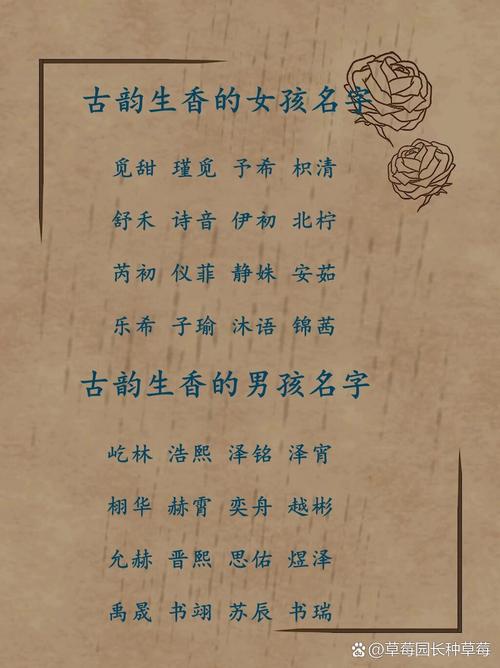 古韵生香的女孩名字
觅甜 瑾觅 予希 枳清
舒禾 诗音 伊初 北柠
芮初 仪菲 静姝 安茹
乐希 子瑜 沐语 锦茜
古韵生香的男孩名字
屹林 浩熙 泽铭 泽宵
栩华 赫霄 奕舟 越彬
允赫 晋熙 思佑 煜泽
禹晟 书翊 苏辰 书瑞
@草莓园长种草莓